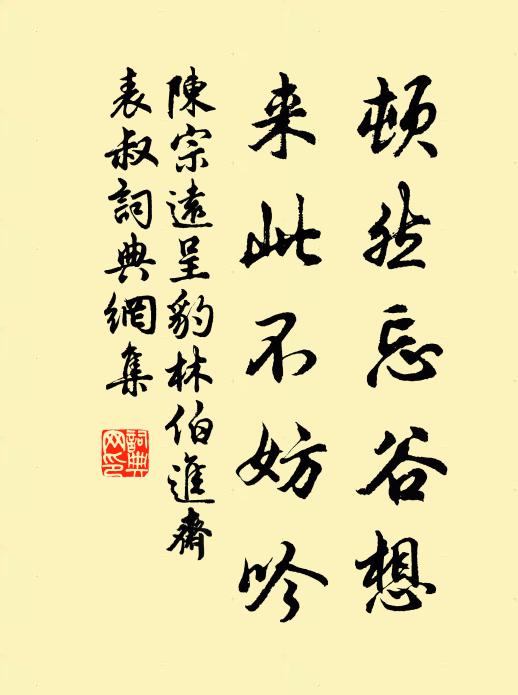 頓然忘谷想
来此不妨吟
陳宗遠呈豹林伯進齋
表叔詞典網集
詞典網印